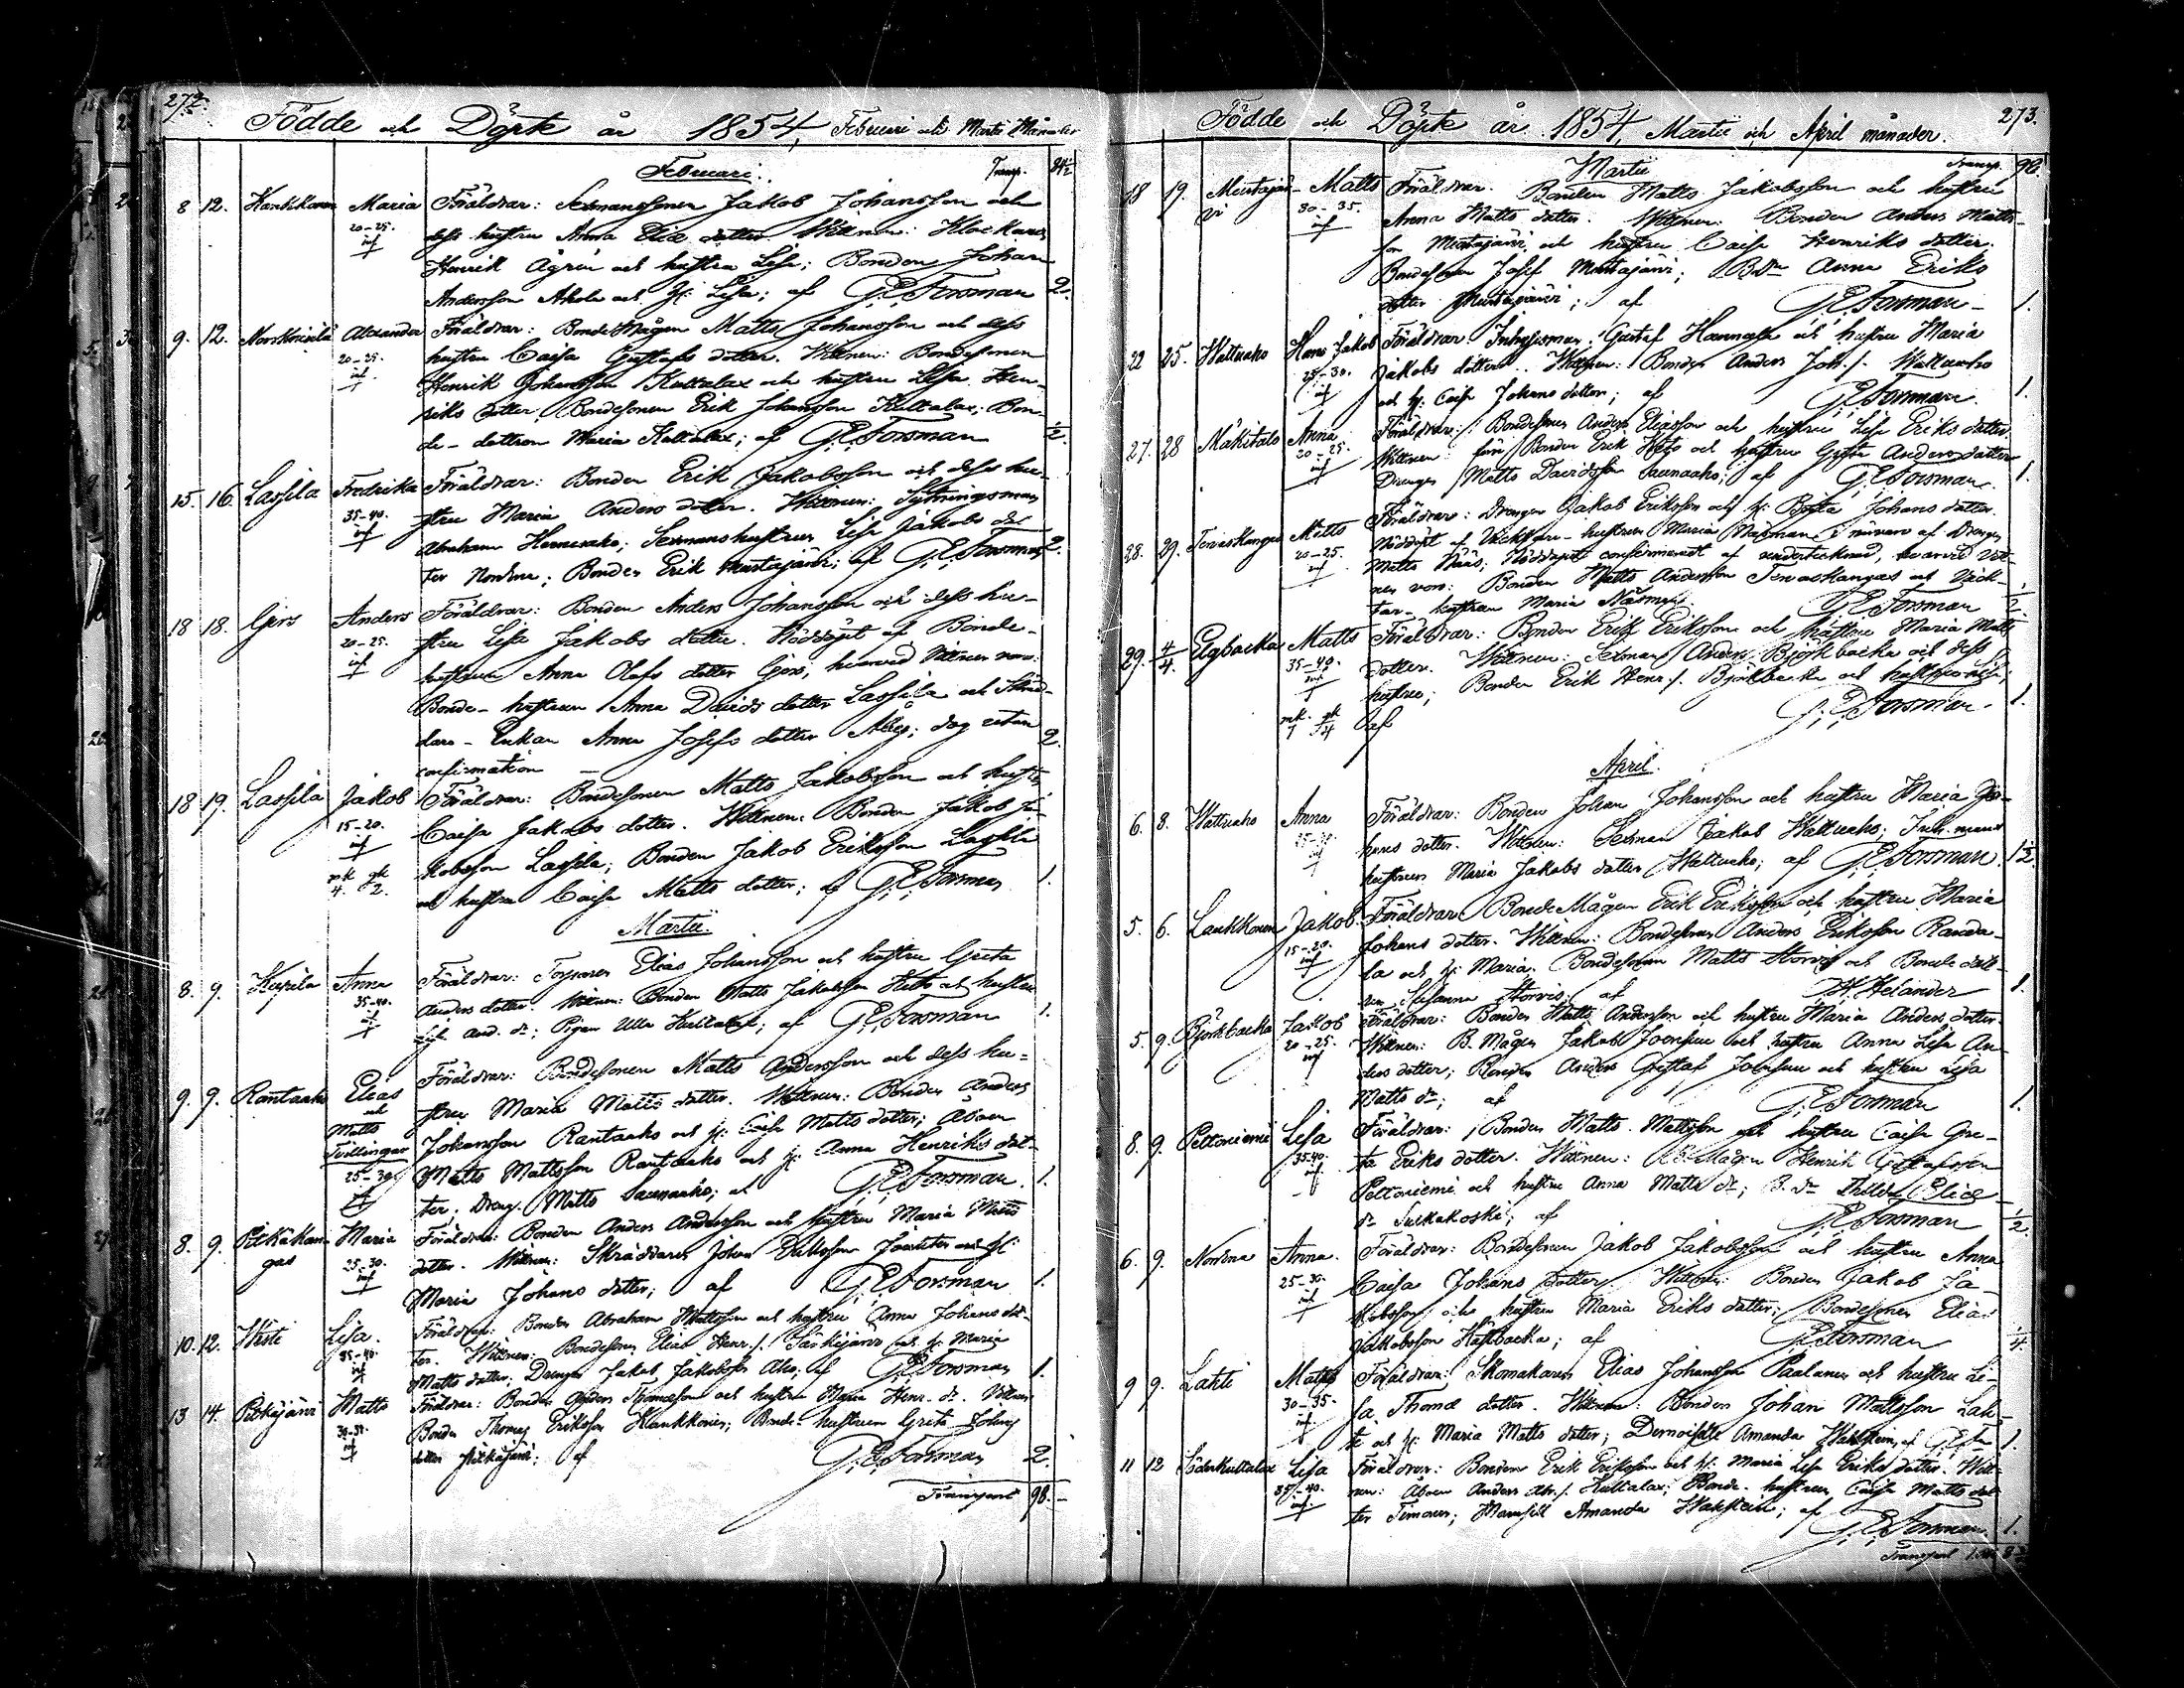 272.
Födde och Döpte år 1854, Februari och Martii Månader
Februari. Transp. 84 1/2
8 12. Kankkonen Maria Föräldrar: Sexmanssonen Jakob Johansson och
20-25. dess hustru Anna Eliæ dotter. Wittnen: Klockaren
Henrik Ågren och hustru Lisa; Bonden Johan
Andersson Ahola och H: Lisa; af G.E. Forsman 2.
9. 12. Alexander Föräldrar: BondeMågen Matts Johansson och dess
20-25. hustru Caisa Gustafs dotter. Wittnen: Bondesonen
Henrik Johansson Kuttalax och hustru Lisa Hen-
riks dotter; Bondesonen Erik Johansson Kuttalax; Bon-
de-dottren Maria Kuttalax; af G.E. Forsman 1/2.
15. 16. Lassila Fredrika Föräldrar: Bonden Erik Jakobsson och dess hu-
35-40. stru Maria Anders dotter. Wittnen: Sytningsman
Abraham; Sexmanshustrun Lisa Jakobs dot
ter Nordma; Bonden Erik Mustajärvi; af G.E. Forsman 2.
18 18. Gers Anders Föräldrar: Bonden Anders Johansson och dess hu-
20-25. stru Lisa Jakobs dotter. Nöddöpt af Bonde-
hustrun Anna Olofs dotter Gers, hvarvid Wittnen voro:
Bonde-hustrun Anna Davids dotter Lassila och
Enkan Anna Josefs dotter; dog utan 2.
confirmation
18 19. Lassila Jakob Föräldrar: Bondesonen Matts Jakobsson och hustru
15-20. Caisa Jakobs dotter. Wittnen: Bonden Jakob Ja-
kobsson Lassila; Bonden Jakob Eriksson Lassila
4. 2. och hustru Caisa Matts dotter; af G.E. Forsman 1.
Martii.
8. 9. Anna Föräldrar: Torparen Elias Johansson och hustru Greta
35-40. Anders dotter. Wittnen: Bonden Matts Jakobsson och hustru
And. dr; Pigan Ulla Kuttalax; af G.E. Forsman 1.
9. 9. Rantaaho Elias Föräldrar: Bondesonen Matts Andersson och dess hu-
och stru Maria Matts dotter. Wittnen: Bonden Anders
Matts Johansson Rantaaho och H: Caisa Matts dotter; Åboen
Tvillingar Matts Mattsson Rantaaho och H: Anna Henriks dot-
25-30. ter; Dreng. Matts Saunaaho; af G.E. Forsman 1.
8. 9. Pitkäkan- Maria Föräldrar: Bonden Anders Andersson och hustru Maria Matts
gas 25-30. dotter. Wittnen: Skräddaren Johan Eriksson och H:
Maria Johans dotter; af G.E. Forsman 1.
10. 12. Lisa. Föräldrar: Bonden Abraham Mattsson och hustru Anna Johans dot-
35-40. ter. Wittnen: Bondesonen Elias Henr./. Särkijärvi och H: Maria
Matts dotter; Drengen Jakob Jakobsson; af G.E. Forsman 1.
13 14. Pitkäjärvi Matts Föräldrar: Bonden Anders Thomasson och hustru Maria Henr. dr. Wittnen
Bonden Thomas Eriksson Kankkonen; Bonde-hustrun Greta Johans
dotter Pitkäjärvi; af G.E. Forsman 2.
Transport 98.-
273.
Födde och Döpte år 1854, Martii och April månader.
Martii Transp. 98.
18 19. Mustajär- Matts Föräldrar. Bonden Matts Jakobsson och hustru
vi 30-35. Anna Matts dotter. Wittnen: Bonden Anders Matts-
son Mustajärvi och hustru Caisa Henriks dotter.
Bondesonen Josef Mustajärvi; B.dr Anna Eriks
dotter Mustajärvi; af G.E. Forsman - 1.
22 25. Wattuaho Hans Jakob Föräldrar: Inhysesman Gustaf Hannason och hustru Maria
25-30. Jakobs dotter. Wittnen: Bonden Anders Joh./. Wattuaho
och H: Caisa Johans dotter; af G.E. Forsman. 1.
27. 28 Mäkitalo Anna Föräldrar: Bondesonen Anders Eliasson och hustru Lisa Eriks dotter.
20-25. Wittnen: Bonden Erik och hustru Greta Anders dotter
Drengen Matts Davidsson Saunaaho; af G.E. Forsman. 1.
28. 29. Tenaskangas Matts Föräldrar: Drengen Jakob Eriksson och H: Johans dotter.
20-25. Nöddöpt af hustrun Maria Näsman i närvaro af Drengen
Matts; Nöddöpet confirmeradt af undertecknad, hvarvid Vitt-
nen voro: Bonden Matts Andersson Tenaskangas och
hustrun Maria Näsman. G.E. Forsman 1/2
29. 4/4 Elgbacka Matts Föräldrar: Bonden Erik Eriksson och hustru Maria Matts
35-40. dotter. Wittnen: Sexman Anders Björkbacka och dess
hustru; Bonden Erik Henr./. Björkbacka och hustru;
af G.E. Forsman. 1.
April.
6. 8. Wattuaho Anna Föräldrar: Bonden Johan Johansson och hustru Maria Jo-
hans dotter. Wittnen: Sexman Jakob Wattuaho; Inh. mans
hustrun Maria Jakobs dotter Wattuaho; af G.E. Forsman. 1 1/2.
5. 6. Jakob Föräldrar: BondeMågen Erik Eriksson och hustru Maria
15-20. Johans dotter. Wittnen: Bondesonen Anders Eriksson Randa-
la och H: Maria. Bondesonen Matts Storvis och Bonde dott-
ren Susanna Storvis; af H. Helander 1.
5. 9. Björkbacka Jakob Föräldrar: Bonden Matts Andersson och hustru Maria Anders dotter.
20-25. Wittnen: B. Mågen Jakob och hustru Anna Lisa An-
ders dotter; Bonden Anders Gustaf och hustru Lisa
Matts dr; af G.E. Forsman 1.
8. 9. Peltoniemi Lisa Föräldrar: Bonden Matts Mattsson och hustru Caisa Gre-
35-40. ta Eriks dotter. Wittnen: B. Mågen Henrik Gustafsson
Peltoniemi och hustru Anna Matts dr; B. dr Eliæ
dr; af G.E. Forsman 1/2
6. 9. Nordma Anna. Föräldrar: Bondesonen Jakob Jakobsson och hustru Anna
25-30. Caisa Johans dotter. Wittnen: Bonden Jakob Ja-
kobsson och hustru Maria Eriks dotter; Bondesonen Elias
Jakobsson; af G.E. Forsman 1/4.
9 9. Lahti Matts Föräldrar: Skomakaren Elias Johansson Paalanen och hustru Li-
30-35. sa Thomæ dotter. Wittnen: Bonden Johan Mattsson Lah-
ti och H: Maria Matts dotter; Demoiselle Amanda Wahlstein, af 1.
11 12 Söderkuttalax Lisa Föräldrar: Bonden Erik Eriksson och H: Maria Lisa Eriks dotter. Witt-
35-40. nen: Åboen Anders Abr./. Kuttalax; Bonde-hustrun Caisa Matts dot
ter Timonen; Mamsell Amanda Wahlstein; af
G.E. Forsman. 1.
Transport